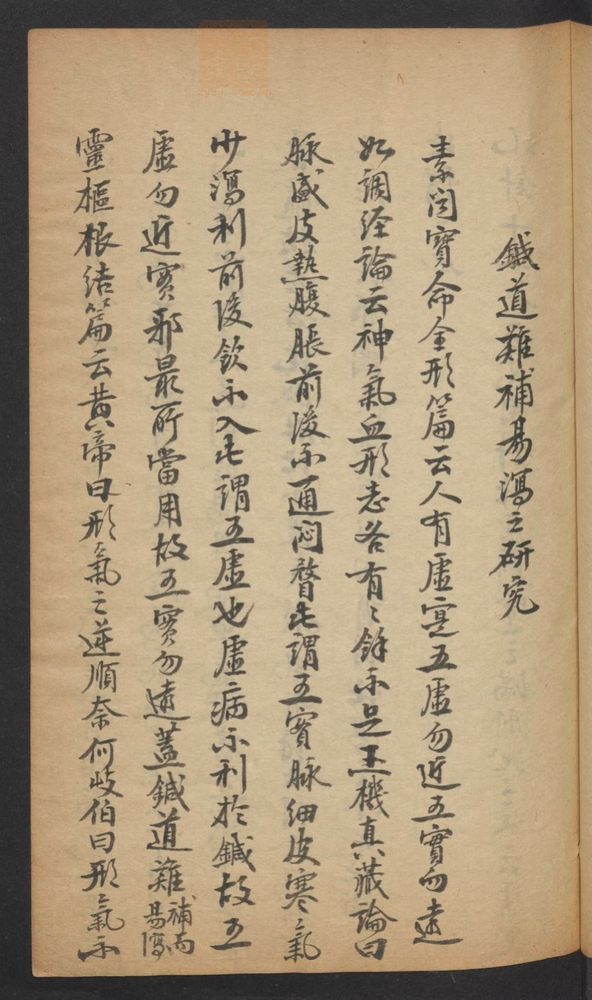 鍼道難補易瀉之研究
素问寶命全形篇云人有虛寔五虛勿近五實勿遠
如調经論云神氣血形志各有〻餘不足玉機真藏論曰
脉盛皮熱腹脹前後不通闷瞀此謂五實脉细皮寒氣
少瀉利前後飲不入此謂五虛也虛病不利於鍼故五
虛勿近實邪最所當用故五實勿遠蓋鍼道難補而易瀉
靈樞根结篇云黄帝曰形氣之逆順奈何岐伯曰形氣不